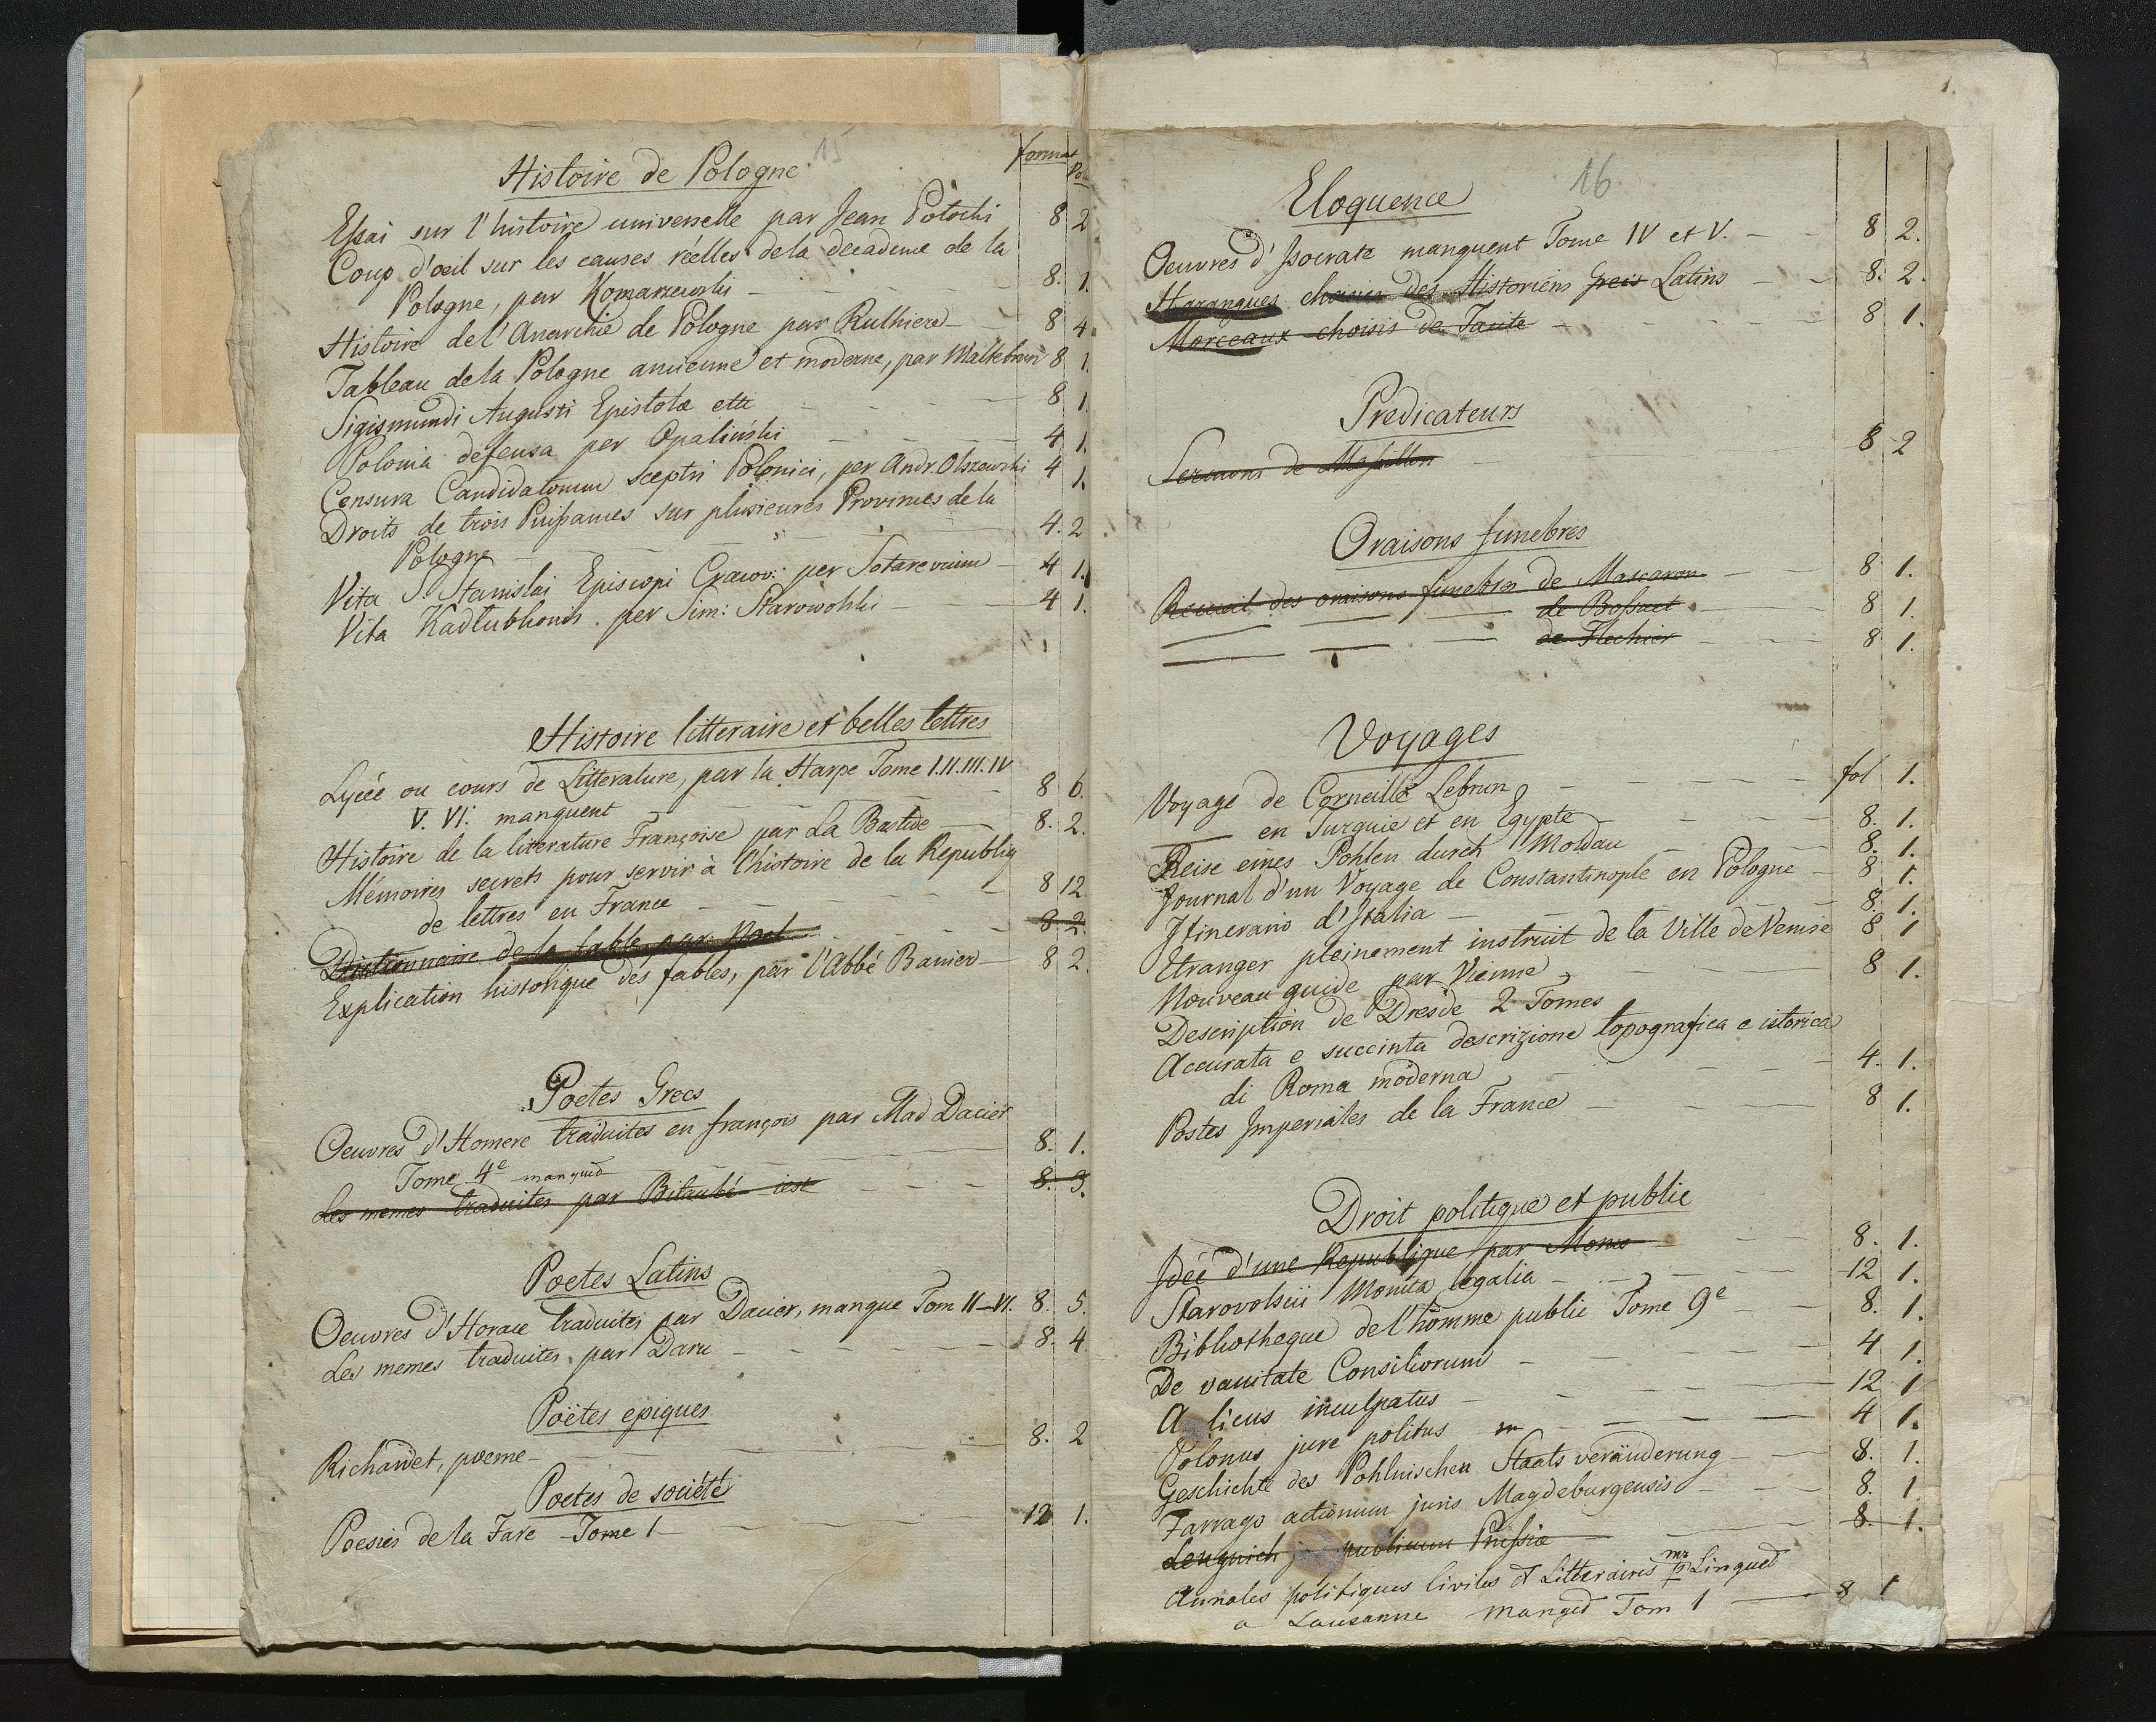 15
format Vol
Histoire de Pologne
Essai sur l'histoire universelle par Jean Potocki 8 2
Coup d'oeil sur les causes réelles de la decadence de la
Pologne, par Komarzewski 8. 1.
Histoire de l'Anarchie de Pologne par Rulhiere 8 4.
Tableau de la Pologne ancienne et moderne, par Maltebrun 8 1.
Sigismundi Augusti Epistolæ ett 8 1.
Polonia defensa per Opaliński 4 1.
Censura Candidatorum sceptri Polonici, per Andr. Olszewski 4 1.
Droits de trois Puissances sur plusieures Provinces de la
Pologne 4. 2
Vita S. Stanislai Episcopi Cracov: per 4 1.
Vita Kadlubkonis. per Sim: Starowolski 4 1.
Histoire litteraire et belles lettres
Lycée ou cours de Litterature, par la Harpe Tome I. II. III. IV
V. VI. manquent 8 6.
Histoire de la literature Françoise par La Bastide 8. 2.
Mémoires secrets pour servir à l'histoire de la Republiq
de lettres en France 8 12
Dictionnaire de la fable par Noel 8 2.
Explication historique des fables, par l'Abbé Banier 8 2.
Poetes Grecs
Oeuvres d'Homere traduites en françois par Mad Dacier
Tome 4e manqué 8. 1.
Les memes traduites par Bitaubé 8. 3.
Poetes Latins
Oeuvres d'Horace traduites par Dacier, manque Tom II–VI. 8. 5.
Les memes traduites par Daru 8. 4
Poëtes epiques
Richardet, poeme 8. 2
Poetes de société
Poesies de la Fare Tome 1 12 1.
1.
16
Eloquence
Oeuvres d'Isocrate manquent Tome IV et V. 8 2.
Harangues des Historiens Grecs Latins 8. 2.
Morceaux choisis de Tacite 8 1.
Predicateurs
Sermons de Massillon 8 2
Oraisons funebres
Recueil des oraisons funebres de Mascaron 8 1.
de Bossuet 8 1.
de Flechier 8 1.
Voyages
Voyage de Corneille Lebrun fol 1.
en Turquie et en Egypte 8. 1.
Reise eines Pohlen durch Moldau 8. 1.
Journal d'un Voyage de Constantinople en Pologne 8 1.
Itinerario d'Italia 8. 1.
Etranger pleinement instruit de la Ville de Venise 8 1
Nouveau guide par Vienne 8 1.
Description de Dresde 2 Tomes
Accurata e succinta descrizione topografica e istorica
di Roma moderna 4. 1.
Postes Imperiales de la France 8 1.
Droit politique et public
Idée d'une Republique par Morus 8. 1.
Starovolscii Monita legalia 12 1.
Bibliotheque de l'homme public Tome 9e 8. 1.
De vanitate Consiliorum 4 1.
licus inculpatus 12 1
Polonus jure politus 4 1.
Geschichte des Pohlnischen Staats veränderung 8. 1.
Farrago actionum juris Magdeburgensis 8. 1
Lengnich publicum Prussiæ 8. 1.
Annales politiques civiles et Litteraires p mr Linguet
a Lausanne manque Tom 1 8 1